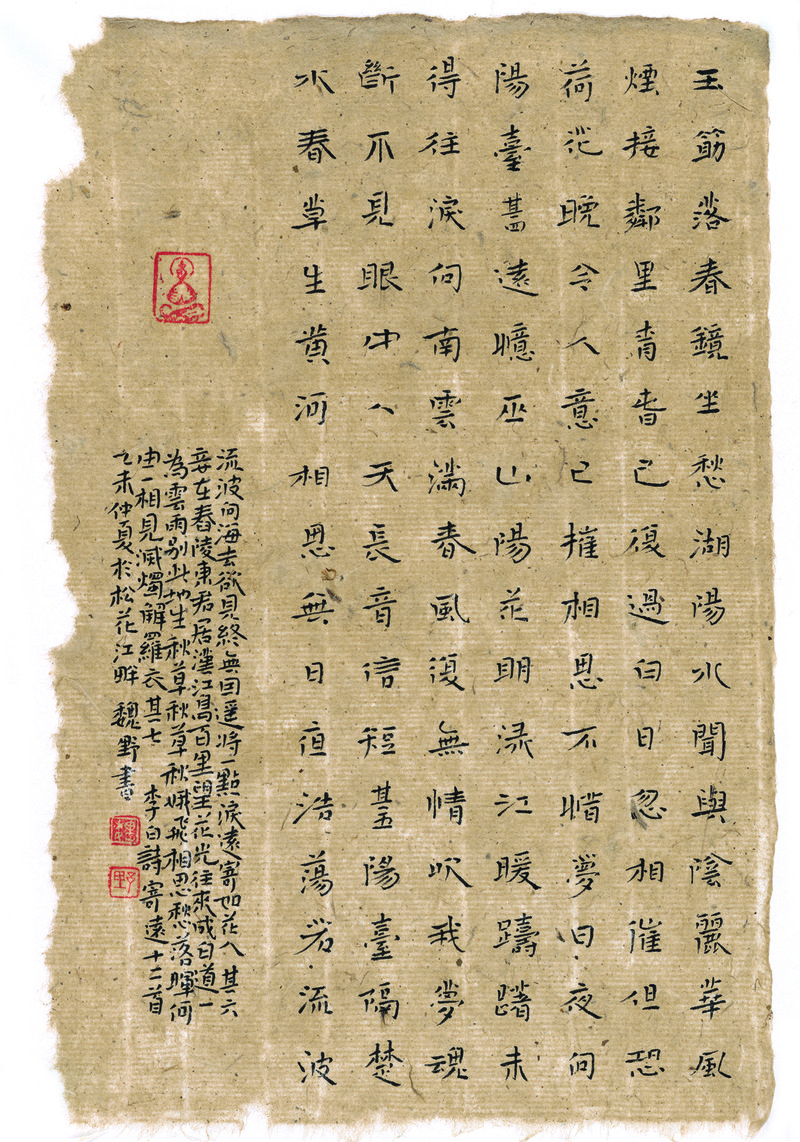 玉筯落春鏡坐愁湖陽水聞與陰麗華風
煙接鄰里青春已復過白日忽相催但恐
荷花晚令人意已摧相思不惜夢日夜向
陽臺其四遠憶巫山陽花明淥江暖躊躇未
得往淚向南雲滿春風復無情吹我夢魂
斷不見眼中人天長音信短其五陽臺隔楚
水春草生黄河相思無日夜浩蕩若流波
流波向海去欲見終無因遥將一點淚遠寄如花人其六
妾在舂陵東君居漢江島百里望花光往來成白道一
為雲雨别此地生秋草秋草秋蛾飛相思愁落暉何
由一相見滅燭解羅衣其七 李白詩寄遠十二首
乙未仲夏於松花江畔 魏野書
野